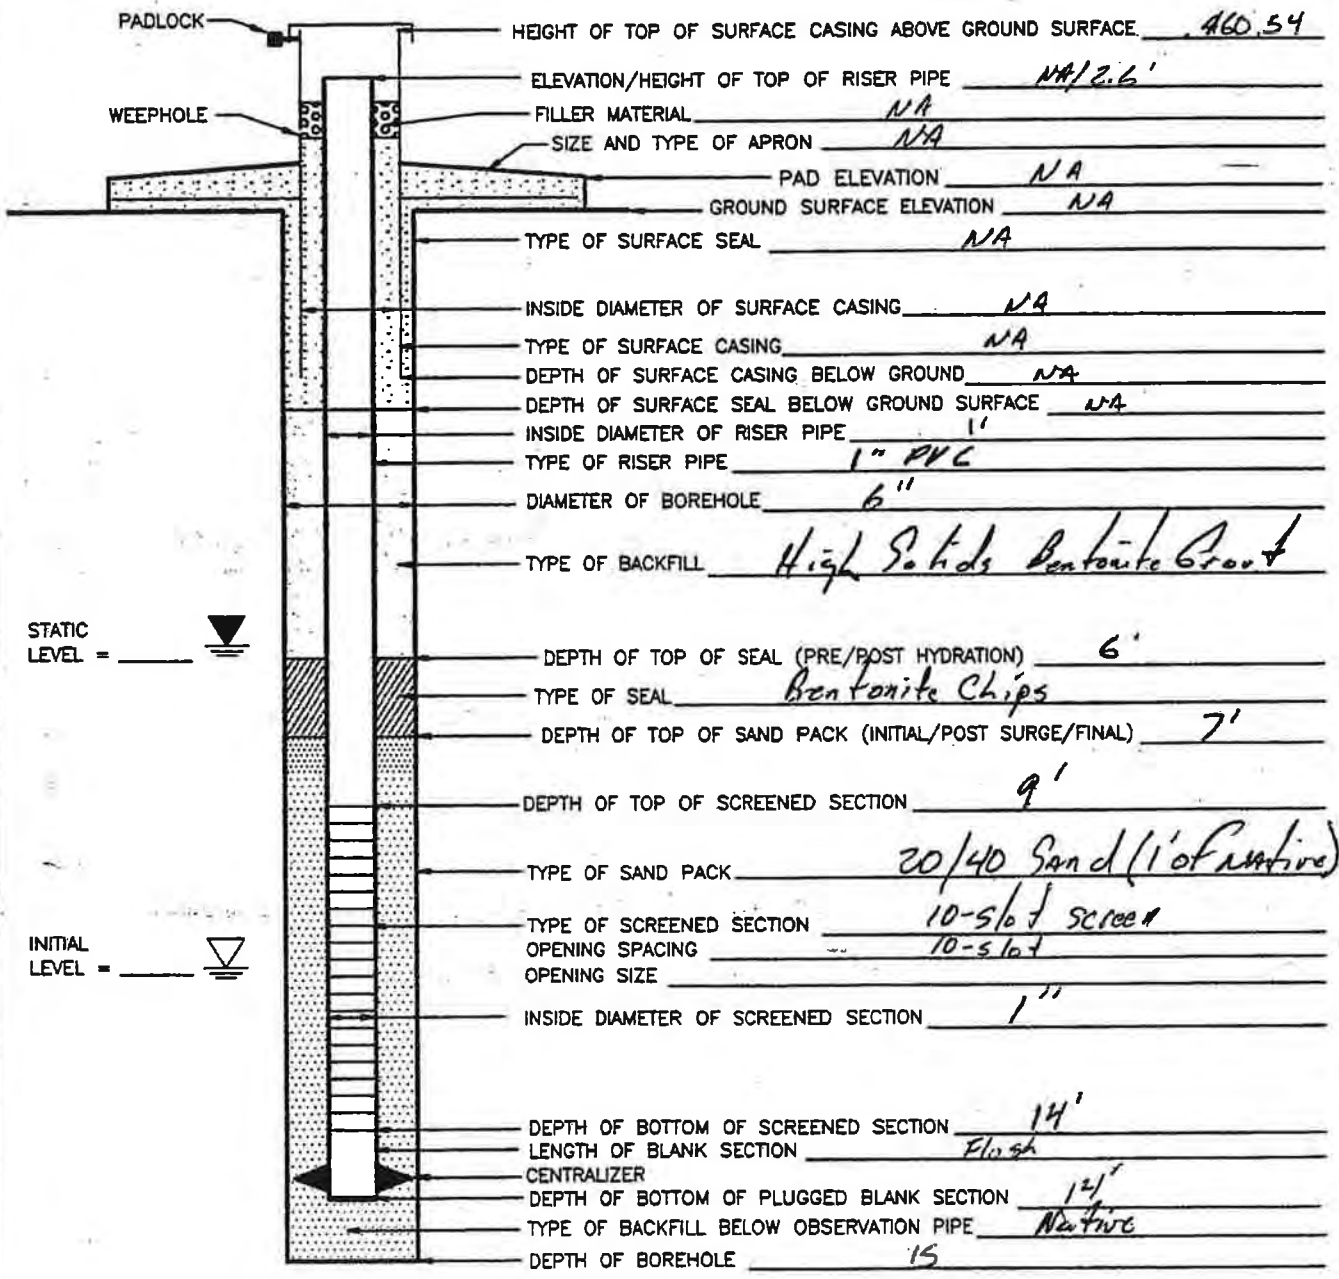 PADLOCK
HEIGHT OF TOP OF SURFACE CASING ABOVE GROUND SURFACE 460.54
ELEVATION/HEIGHT OF TOP OF RISER PIPE NA/2.6'
WEEPHOLE
FILLER MATERIAL NA
SIZE AND TYPE OF APRON NA
PAD ELEVATION NA
GROUND SURFACE ELEVATION NA
TYPE OF SURFACE SEAL NA
INSIDE DIAMETER OF SURFACE CASING NA
TYPE OF SURFACE CASING NA
DEPTH OF SURFACE CASING BELOW GROUND NA
DEPTH OF SURFACE SEAL BELOW GROUND SURFACE NA
INSIDE DIAMETER OF RISER PIPE 1'
TYPE OF RISER PIPE 1" PVC
DIAMETER OF BOREHOLE 6"
TYPE OF BACKFILL High Solids Bentonite Grout
STATIC
LEVEL =
DEPTH OF TOP OF SEAL (PRE/POST HYDRATION) 6'
TYPE OF SEAL Bentonite Chips
DEPTH OF TOP OF SAND PACK (INITIAL/POST SURGE/FINAL) 7'
DEPTH OF TOP OF SCREENED SECTION 9'
TYPE OF SAND PACK 20/40 Sand (1' of native)
TYPE OF SCREENED SECTION 10-slot screen
OPENING SPACING 10-slot
OPENING SIZE
INITIAL
LEVEL =
INSIDE DIAMETER OF SCREENED SECTION 1"
DEPTH OF BOTTOM OF SCREENED SECTION 14'
LENGTH OF BLANK SECTION Flush
CENTRALIZER
DEPTH OF BOTTOM OF PLUGGED BLANK SECTION 14'
TYPE OF BACKFILL BELOW OBSERVATION PIPE Native
DEPTH OF BOREHOLE 15